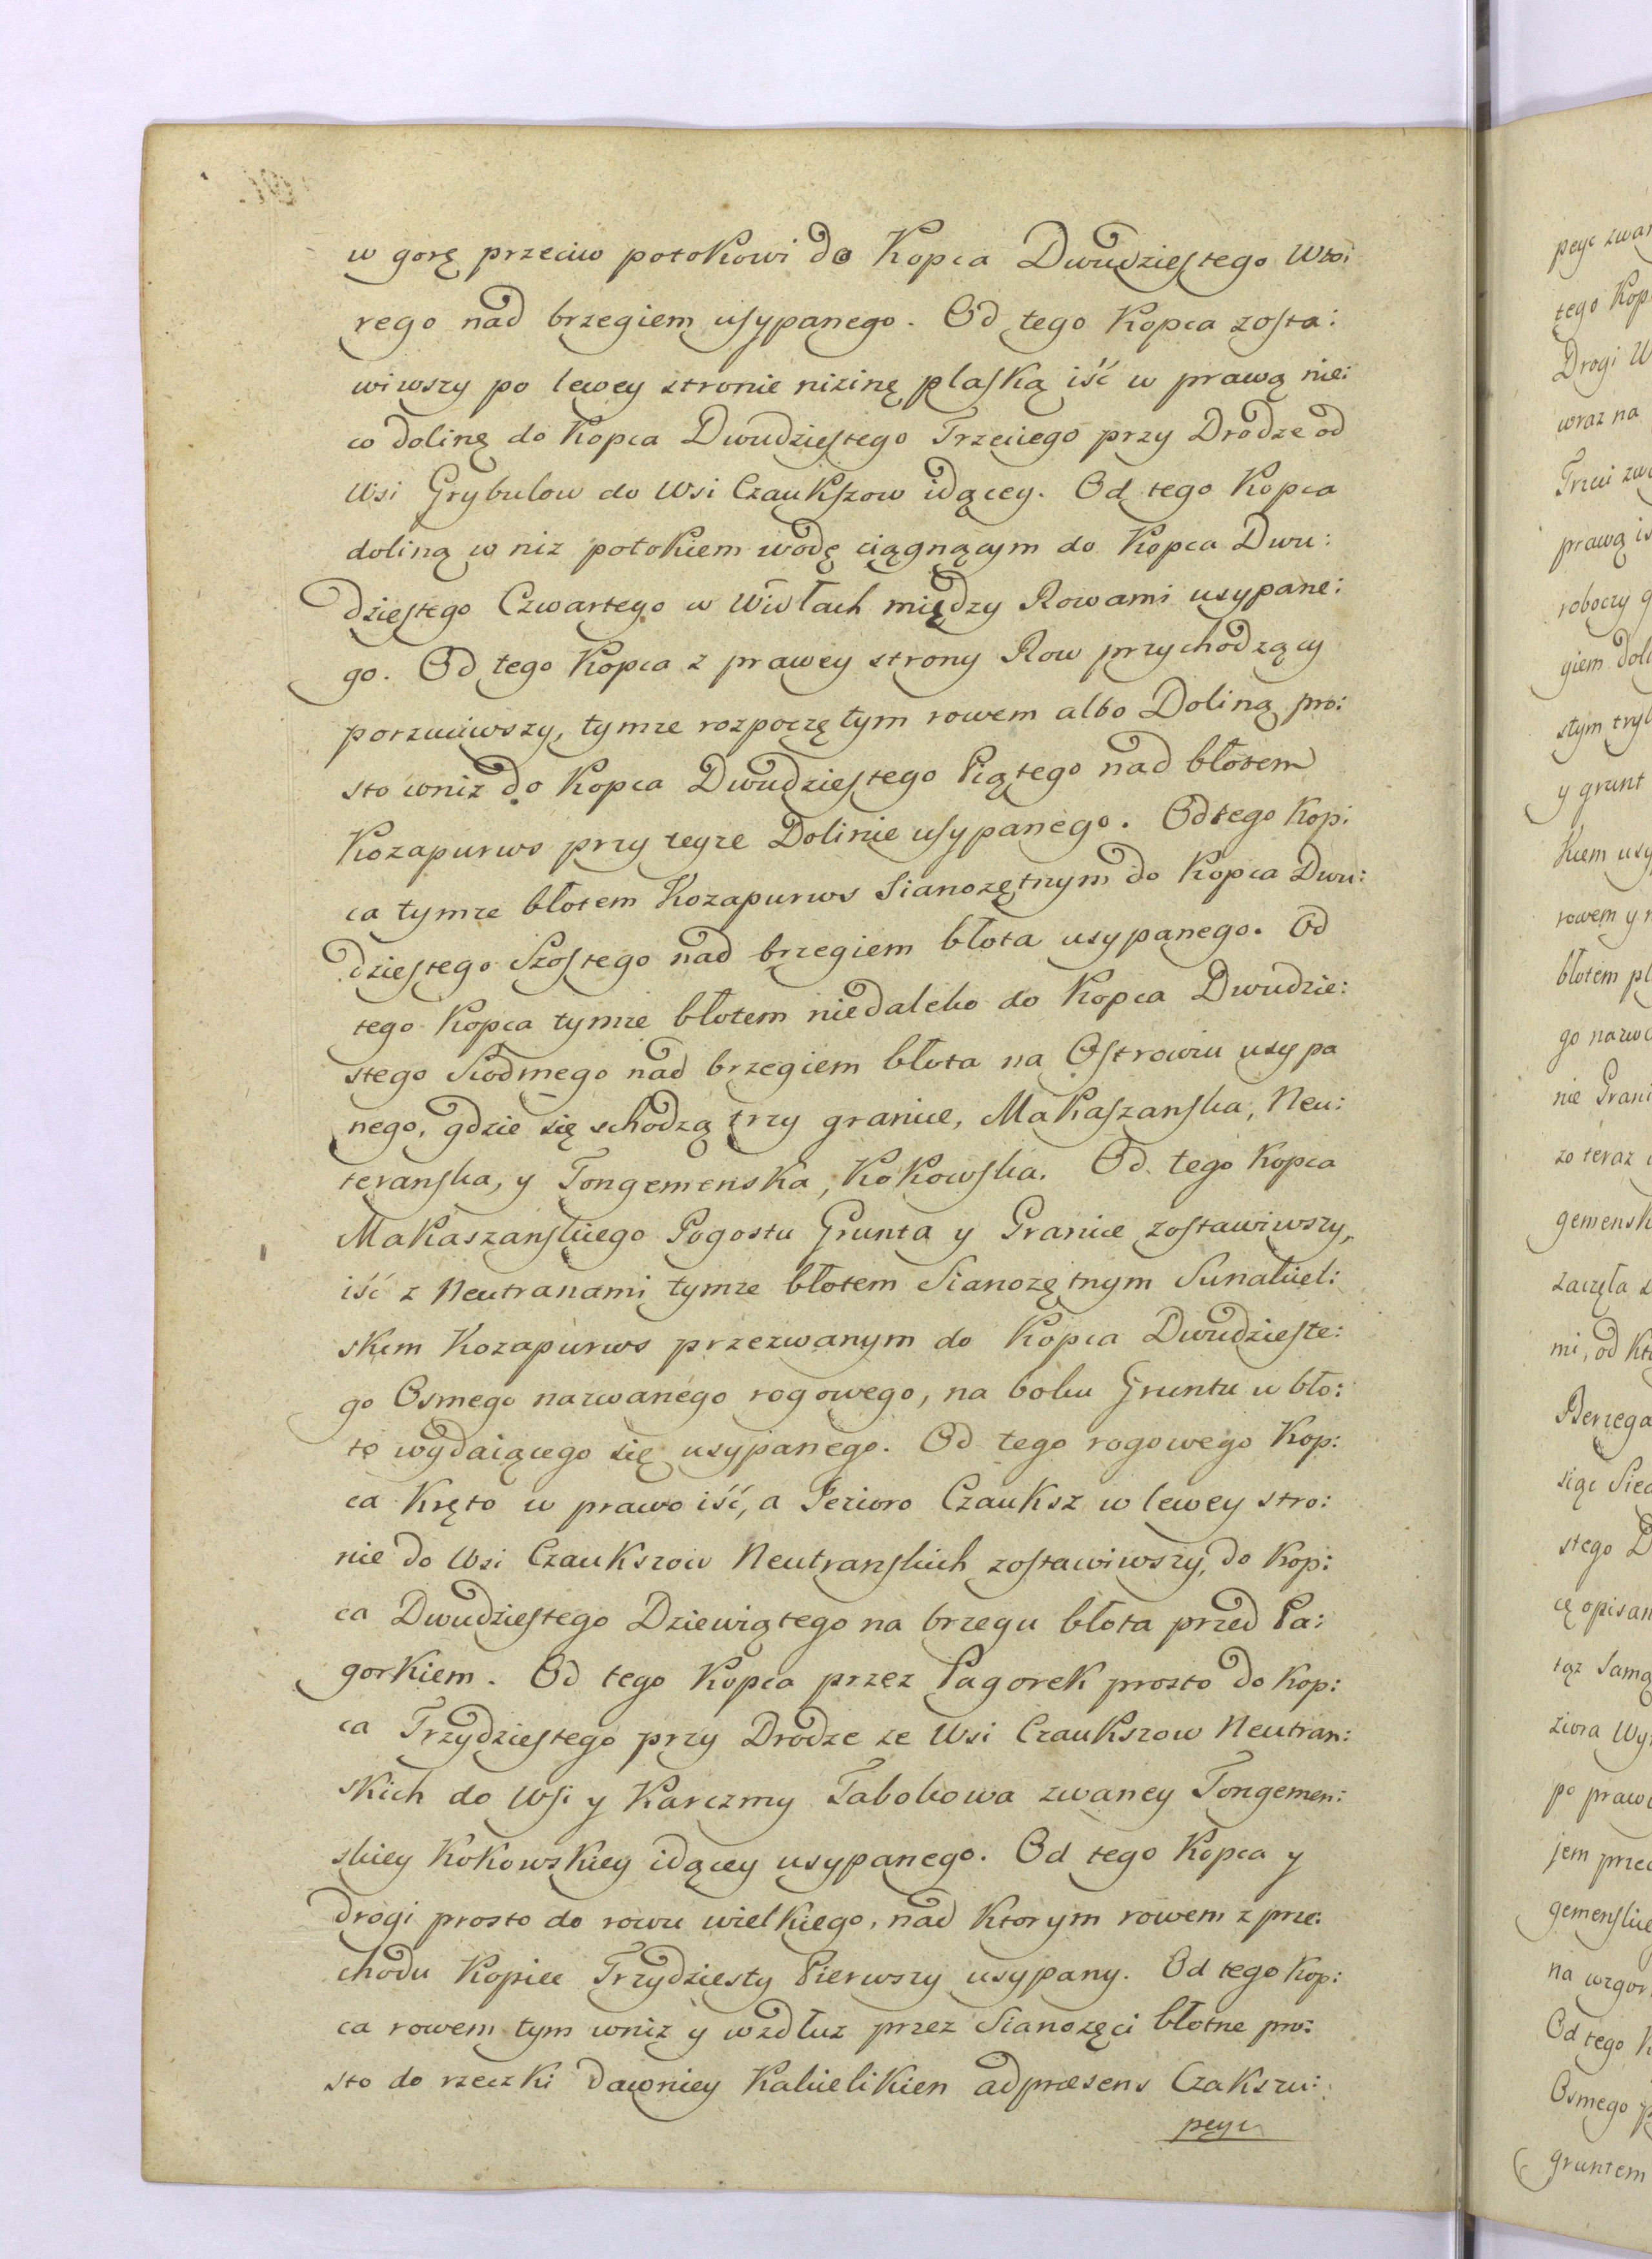 w gorę przeciw potokowi do Kopca Dwudziestego Wto:
rego nad brzegiem usypanego. Od tego Kopca zosta:
wiwszy po lewey stronie nizinę plaską iść w prawą nie:
co dolinę do Kopca Dwudziestego Trzeciego przy Drodze od
Wsi Grybulow do Wsi Czaukszow idącey. Od tego Kopca
doliną w niz potokiem wodę ciągnącym do Kopca Dwu:
dziestego Czwartego w Widłach między Rowami usypane:
go. Od tego Kopca z prawey strony Row przychodzący
porzuciwszy, tymze rozpoczętym rowem albo Doliną pro:
sto wniz do Kopca Dwudziestego Piątego nad błotem
Kozapurws przy teyze Dolinie usypanego. Od tego Kop:
ca tymze błotem Kozapurws Sianozętnym do Kopca Dwu:
dziestego Szostego nad brzegiem błota usypanego. Od
tego Kopca tymze błotem niedaleko do Kopca Dwudzie:
stego Siodmego nad brzegiem błota na Ostrowiu usypa
nego, gdzie się schodzą trzy granice, Makaszanska, Neu:
teranska, y Tongemenska, Kokowska. Od tego Kopca
Makaszanskiego Pogostu Grunta y Granice zostawiwszy,
iść z Neutranami tymze błotem Sianozętnym Sunakiel:
skim Kozapurws przezwanym do Kopca Dwudzieste:
go Osmego nazwanego rogowego, na boku Gruntu w bło:
to wydaiącego się usypanego. Od tego rogowego Kop:
ca Kręto w prawo iść, a Jezioro Czauksz w lewey stro:
nie do Wsi Czaukszow Neutranskich zostawiwszy, do Kop:
ca Dwudziestego Dziewiątego na brzegu błota przed Pa:
gorkiem. Od tego Kopca przez Pagorek prosto do Kop:
ca Trzydziestego przy Drodze ze Wsi Czaukszow Neutran:
skich do Wsi y Karczmy Tabokowa zwaney Tongemen:
skiey Kokowskiey idącey usypanego. Od tego Kopca y
drogi prosto do rowu wielkiego, nad ktorym rowem z prze:
chodu Kopiec Trzydziesty Pierwszy usypany. Od tego Kop:
ca rowem tym wniz y wzdłuz przez Sianozęci błotne pro:
sto do rzeczki dawniey Kakielikien ad præsens Czakszu:
peyc